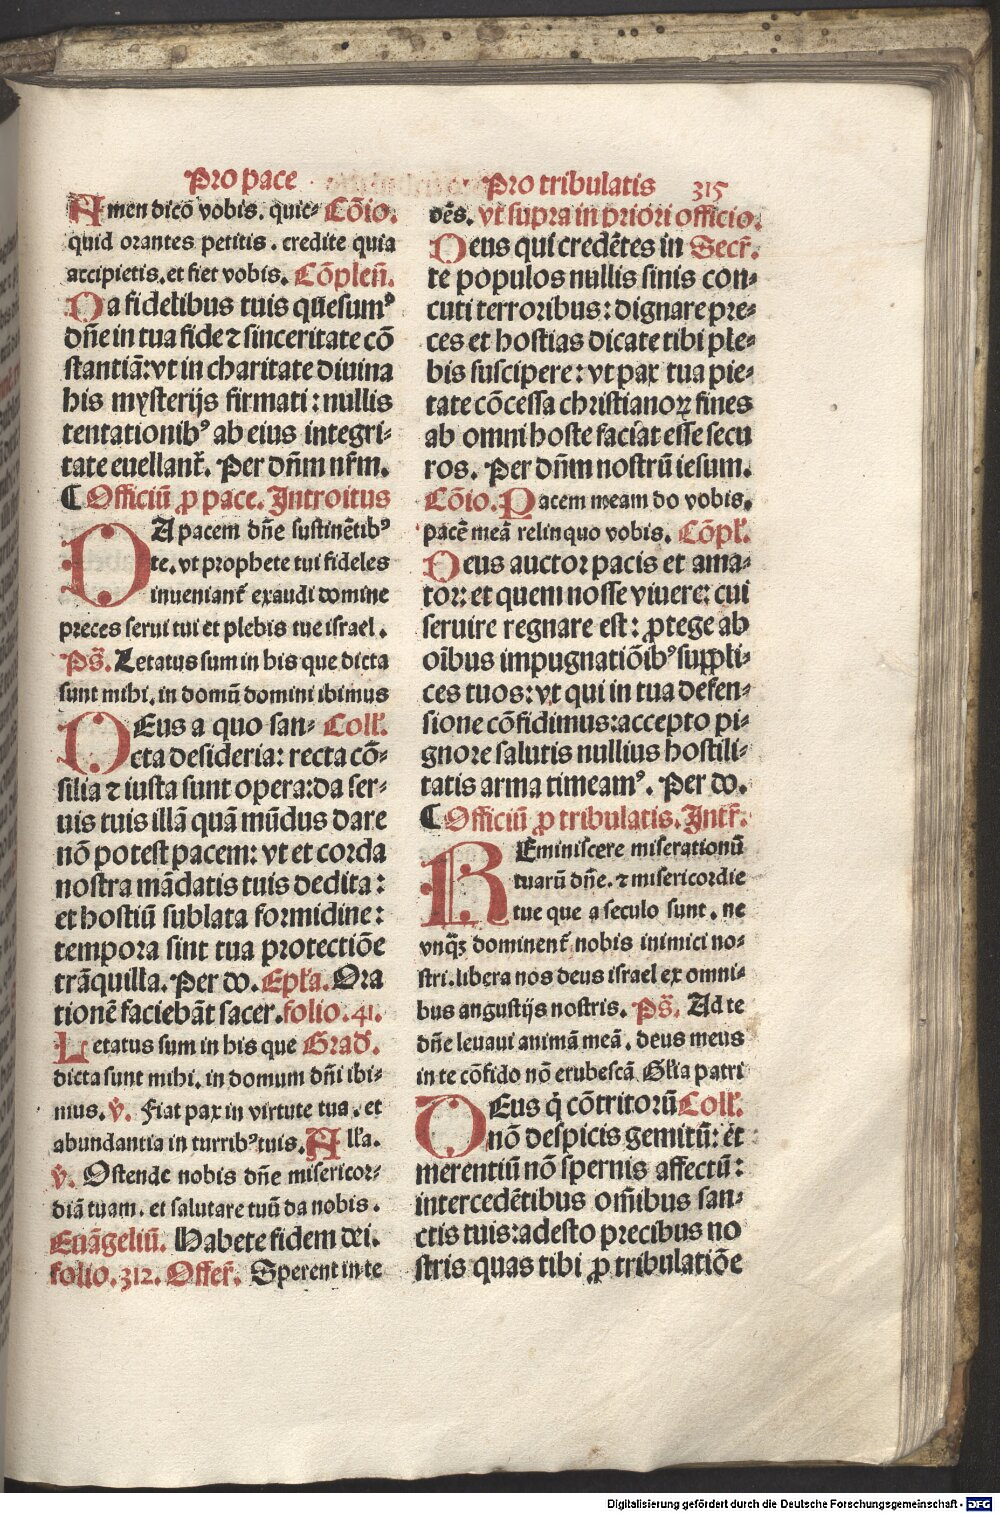 Pro pace
Pro tribulatis 315
Amen dicō vobis. quic⸗ Cōio.
quid orantes petitis. credite quia
accipietis. et fiet vobis. Cōpleñ.
Da fidelibus tuis quesumꝰ
dñe in tua fide ⁊ sinceritate cō
stantiā: vt in charitate diuina
his mysterijs firmati: nullis
tentationibꝰ ab eius integri⸗
tate euellanť. Per dñm nr̄m.
¶ Officiū ꝓ pace. Introitus
DA pacem dñe sustinētibꝰ
te. vt prophete tui fideles
inuenianť exaudi domine
preces serui tui et plebis tue israel.
Ps̄. Letatus sum in his que dicta
sunt mihi. in domū domini ibimus
DEus a quo san⸗ Coll'.
cta desideria: recta cō⸗
silia ⁊ iusta sunt opera: da ser⸗
uis tuis illā quā mūdus dare
nō potest pacem: vt et corda
nostra mādatis tuis dedita:
et hostiū sublata formidine:
tempora sint tua protectiōe
trāquilla. Per do. Epl'a. Ora
tionē faciebāt sacer. folio. 41.
Letatus sum in his que Grad'.
dicta sunt mihi. in domum dñi ibi⸗
mus. v̄. Fiat pax in virtute tua. et
abundantia in turribꝰ tuis. All'a.
v̄. Ostende nobis dñe misericor⸗
diā tuam. et salutare tuū da nobis.
Euāgeliū. Habete fidem dei.
folio. 312. Offer̄. Sperent in te
oēs. vt supra in priori officio.
Deus qui credētes in Secr̄.
te populos nullis sinis con⸗
cuti terroribus: dignare pre⸗
ces et hostias dicate tibi ple⸗
bis suscipere: vt pax tua pie⸗
tate cōcessa christianoꝝ fines
ab omni hoste faciat esse secu
ros. Per dñm nostrū iesum.
Cōio. Pacem meam do vobis.
pacē meā relinquo vobis. Cōpl'.
Deus auctor pacis et ama⸗
tor: et quem nosse viuere: cui
seruire regnare est: ꝓtege ab
oībus impugnatiōibꝰ suppli⸗
ces tuos: vt qui in tua defen⸗
sione cōfidimus: accepto pi⸗
gnore salutis nullius hostili⸗
tatis arma timeamꝰ. Per do.
¶ Officiū ꝓ tribulatis. Intr̄.
REminiscere miserationū
tuarū dñe. ⁊ misericordie
tue que a seculo sunt. ne
vnq̄ꝫ dominenť nobis inimici no⸗
stri. libera nos deus israel ex omni⸗
bus angustijs nostris. Ps̄. Ad te
dñe leuaui animā meā. deus meus
in te cōfido nō erubescā Gl'ia patri
DEus q̇ cōtritorū Coll'.
nō despicis gemitū: et
merentiū nō spernis affectū:
intercedētibus om̄ibus san⸗
ctis tuis: adesto precibus no
stris quas tibi ꝓ tribulatiōe
Digitalisierung gefördert durch die Deutsche Forschungsgemeinschaft - DFG